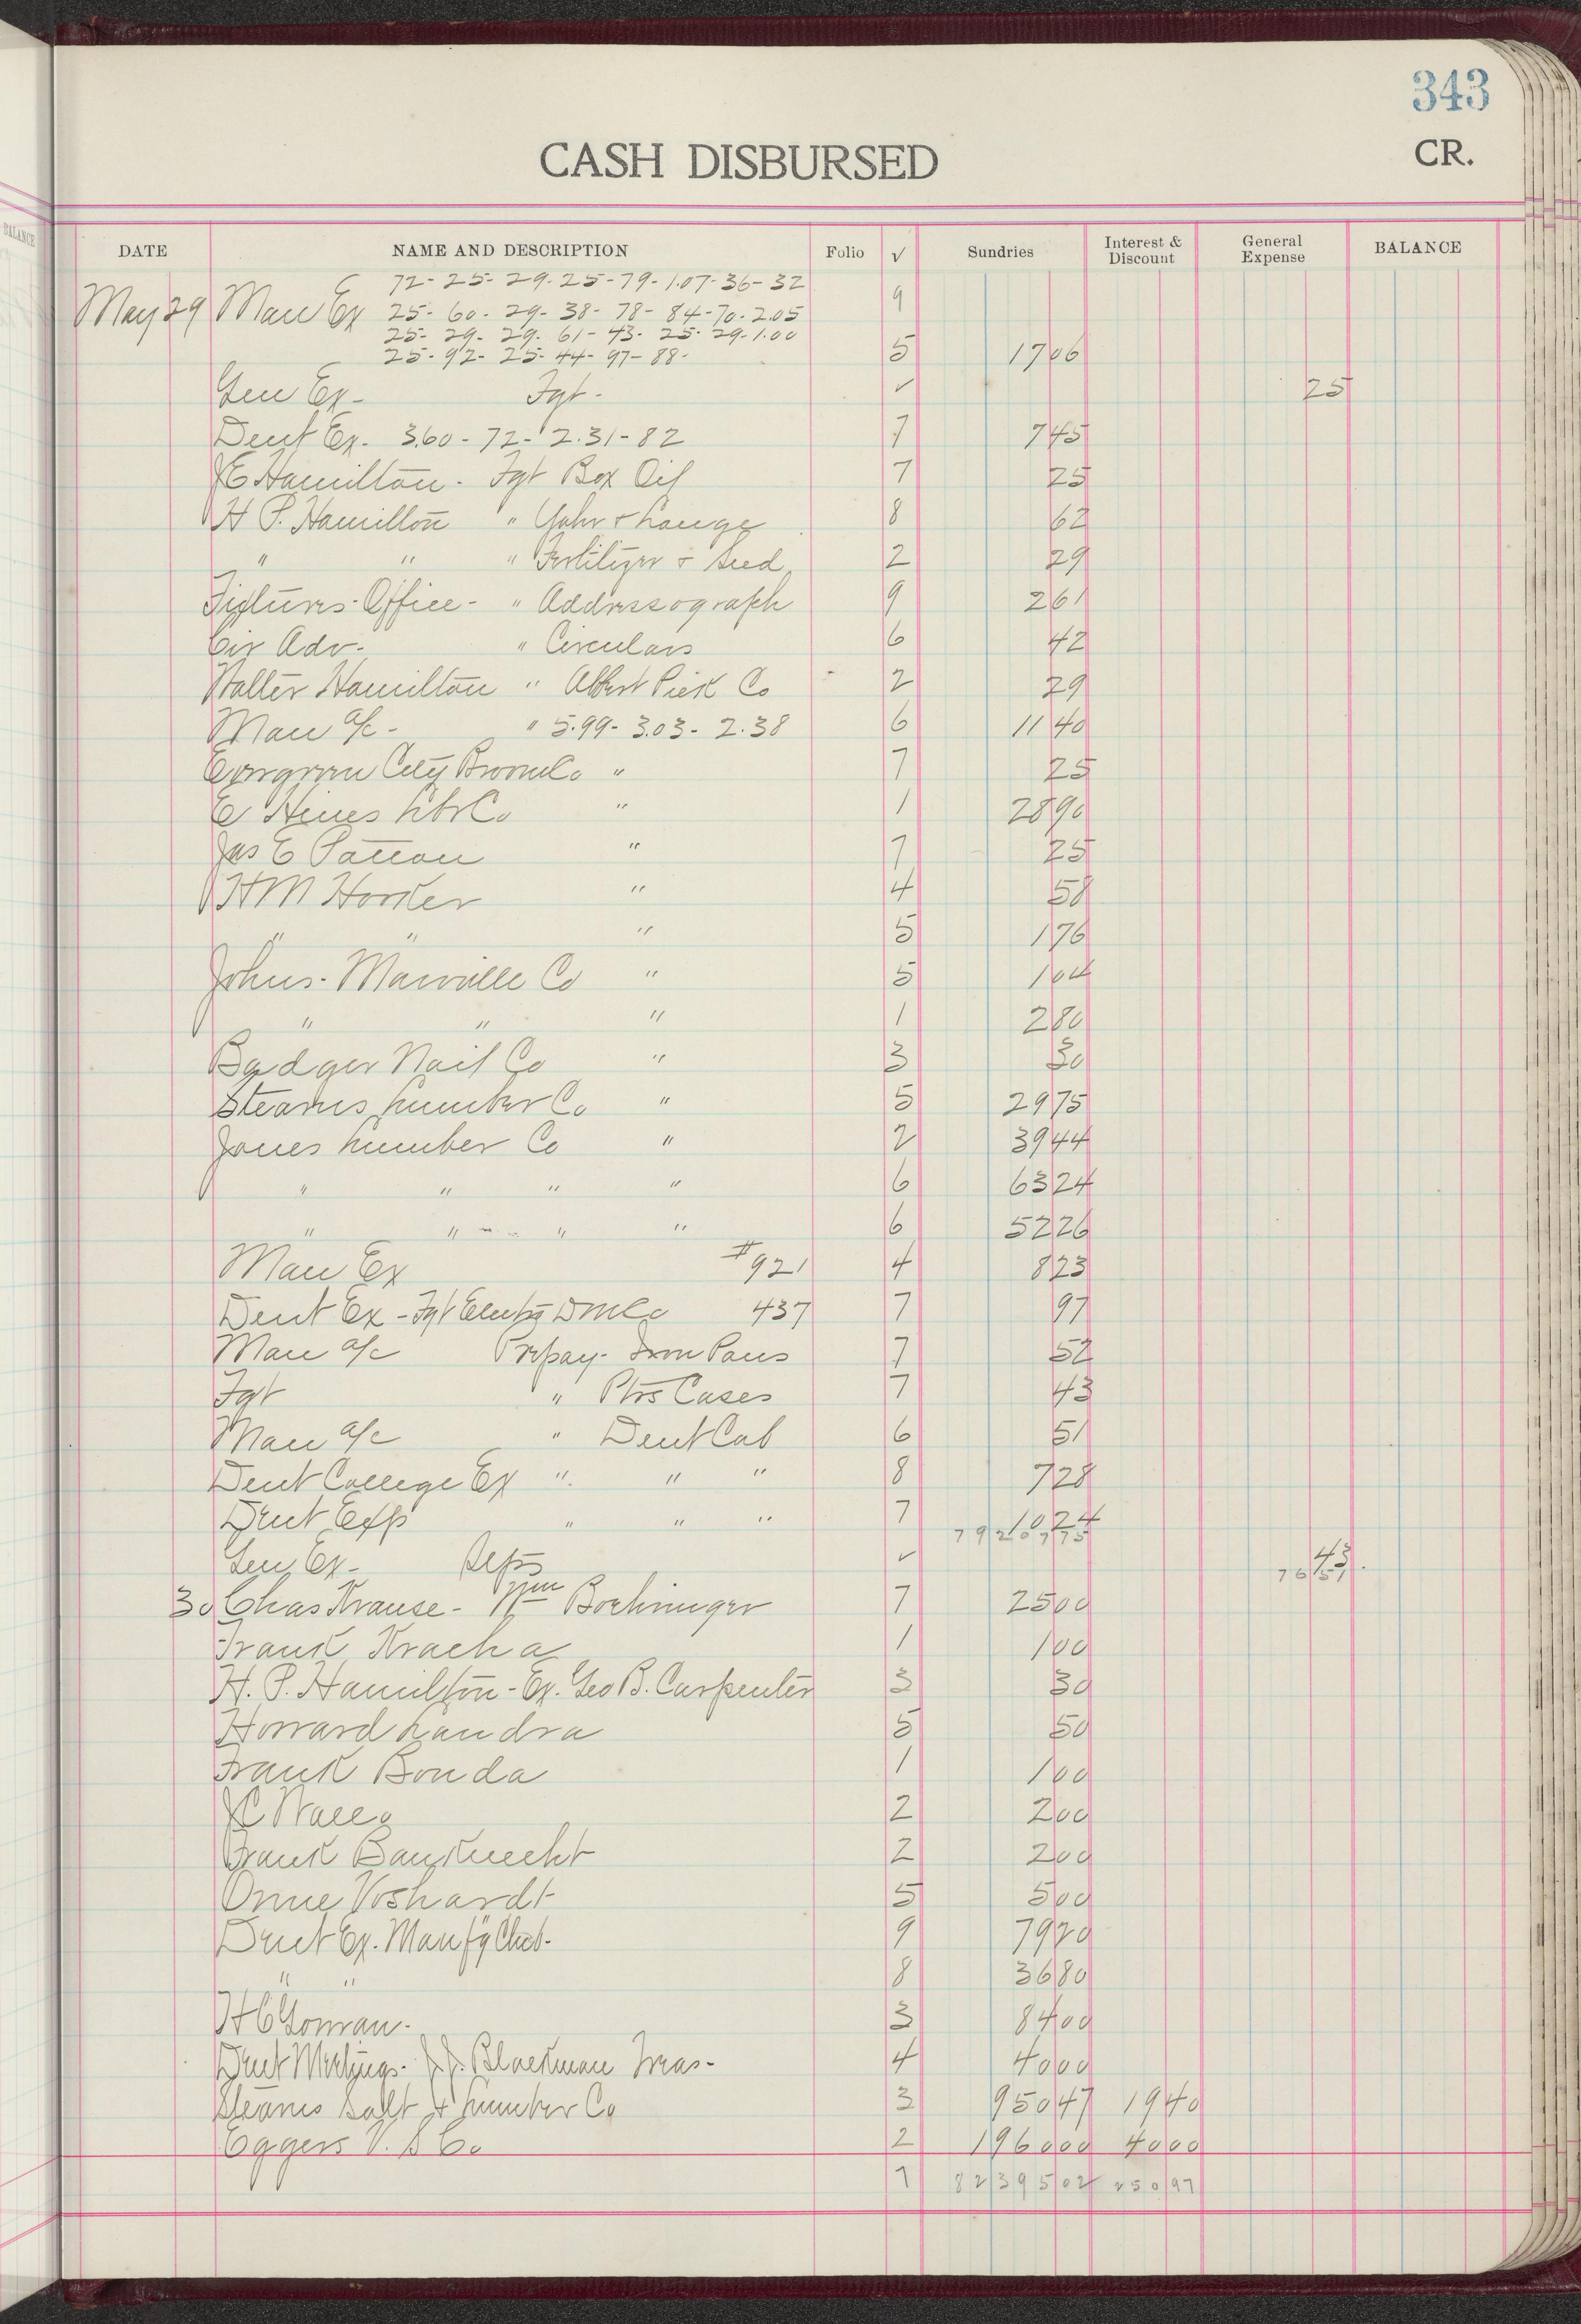 343
CASH DISBURSED
CR.
DATE NAME AND DESCRIPTION Folio √ Sundries Interest & Discount General Expense BALANCE
72-25-29-25-79-1.07-36-32 9
May 29 Man Ex 25-60-29-38-78-84-70-2.05
25-29-29-61-43-25-29-1.00
25-92-25-44-97-88- 5 17 06
Gen Ex- Fgt- ✓ 25
Dent Ex- 3.60-72-2.31-82 7 7 45
J E Hamilton- Fgt Box Oil 7 25
H P. Hamilton " Yahr & Lange 8 62
" " " Fertilizer & Seed 2 29
Fixtures-Office- " Addressograph 9 2 61
Cir Adv- " Circulars 6 42
Walter Hamilton " Albert Pick Co 2 29
Man a/c- " 5.99-3.03-2.38 6 11 40
Evergreen City Broom Co " 7 25
E Hines Lbr Co " 1 28 90
Jas E Patton " 7 25
H M Hooker " 4 58
" " " 5 1 76
Johns-Manville Co " 5 1 04
" " " 1 2 80
Badger Nail Co " 3 30
Stearns Lumber Co " 5 29 75
Jones Lumber Co " 2 39 44
" " " " 6 63 24
" " " " 6 52 26
Man Ex #921 4 8 23
Dent Ex-Fgt 437 7 97
Man a/c Prepay- Iron Pans 7 52
Fgt " Ptrs Cases 7 43
Man a/c " Dent Cab 6 51
Dent College Ex " " " 8 7 28
Dent Exp " " " 7 10 24
79 20 7 75
Gen Ex- ✓ 43
76 51
30 Chas Krause- Wm Boehringer 7 25 00
Frank Kracha 1 1 00
H. P. Hamilton-Ex. Geo B. Carpenter 3 30
Howard Landra 5 50
Frank Bonda 1 1 00
J C 2 2 00
Frank Bauknecht 2 2 00
Orme Voshardt 5 5 00
Dent Ex. Manfg Club- 9 79 20
" " 8 36 80
H C Gorman- 3 84 00
Dent Meetings- J. J. Blackman Treas- 4 40 00
Stearns Salt & Lumber Co 3 950 47 19 40
Eggers V. S Co 2 1960 00 40 00
7 82395 02 250 97